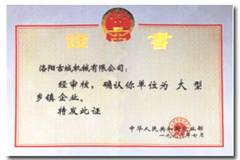 证书
洛阳古城机械有限公司:
经审核,确认你单位为大型
乡镇企业。
特发此证
中华人民共和国农业部